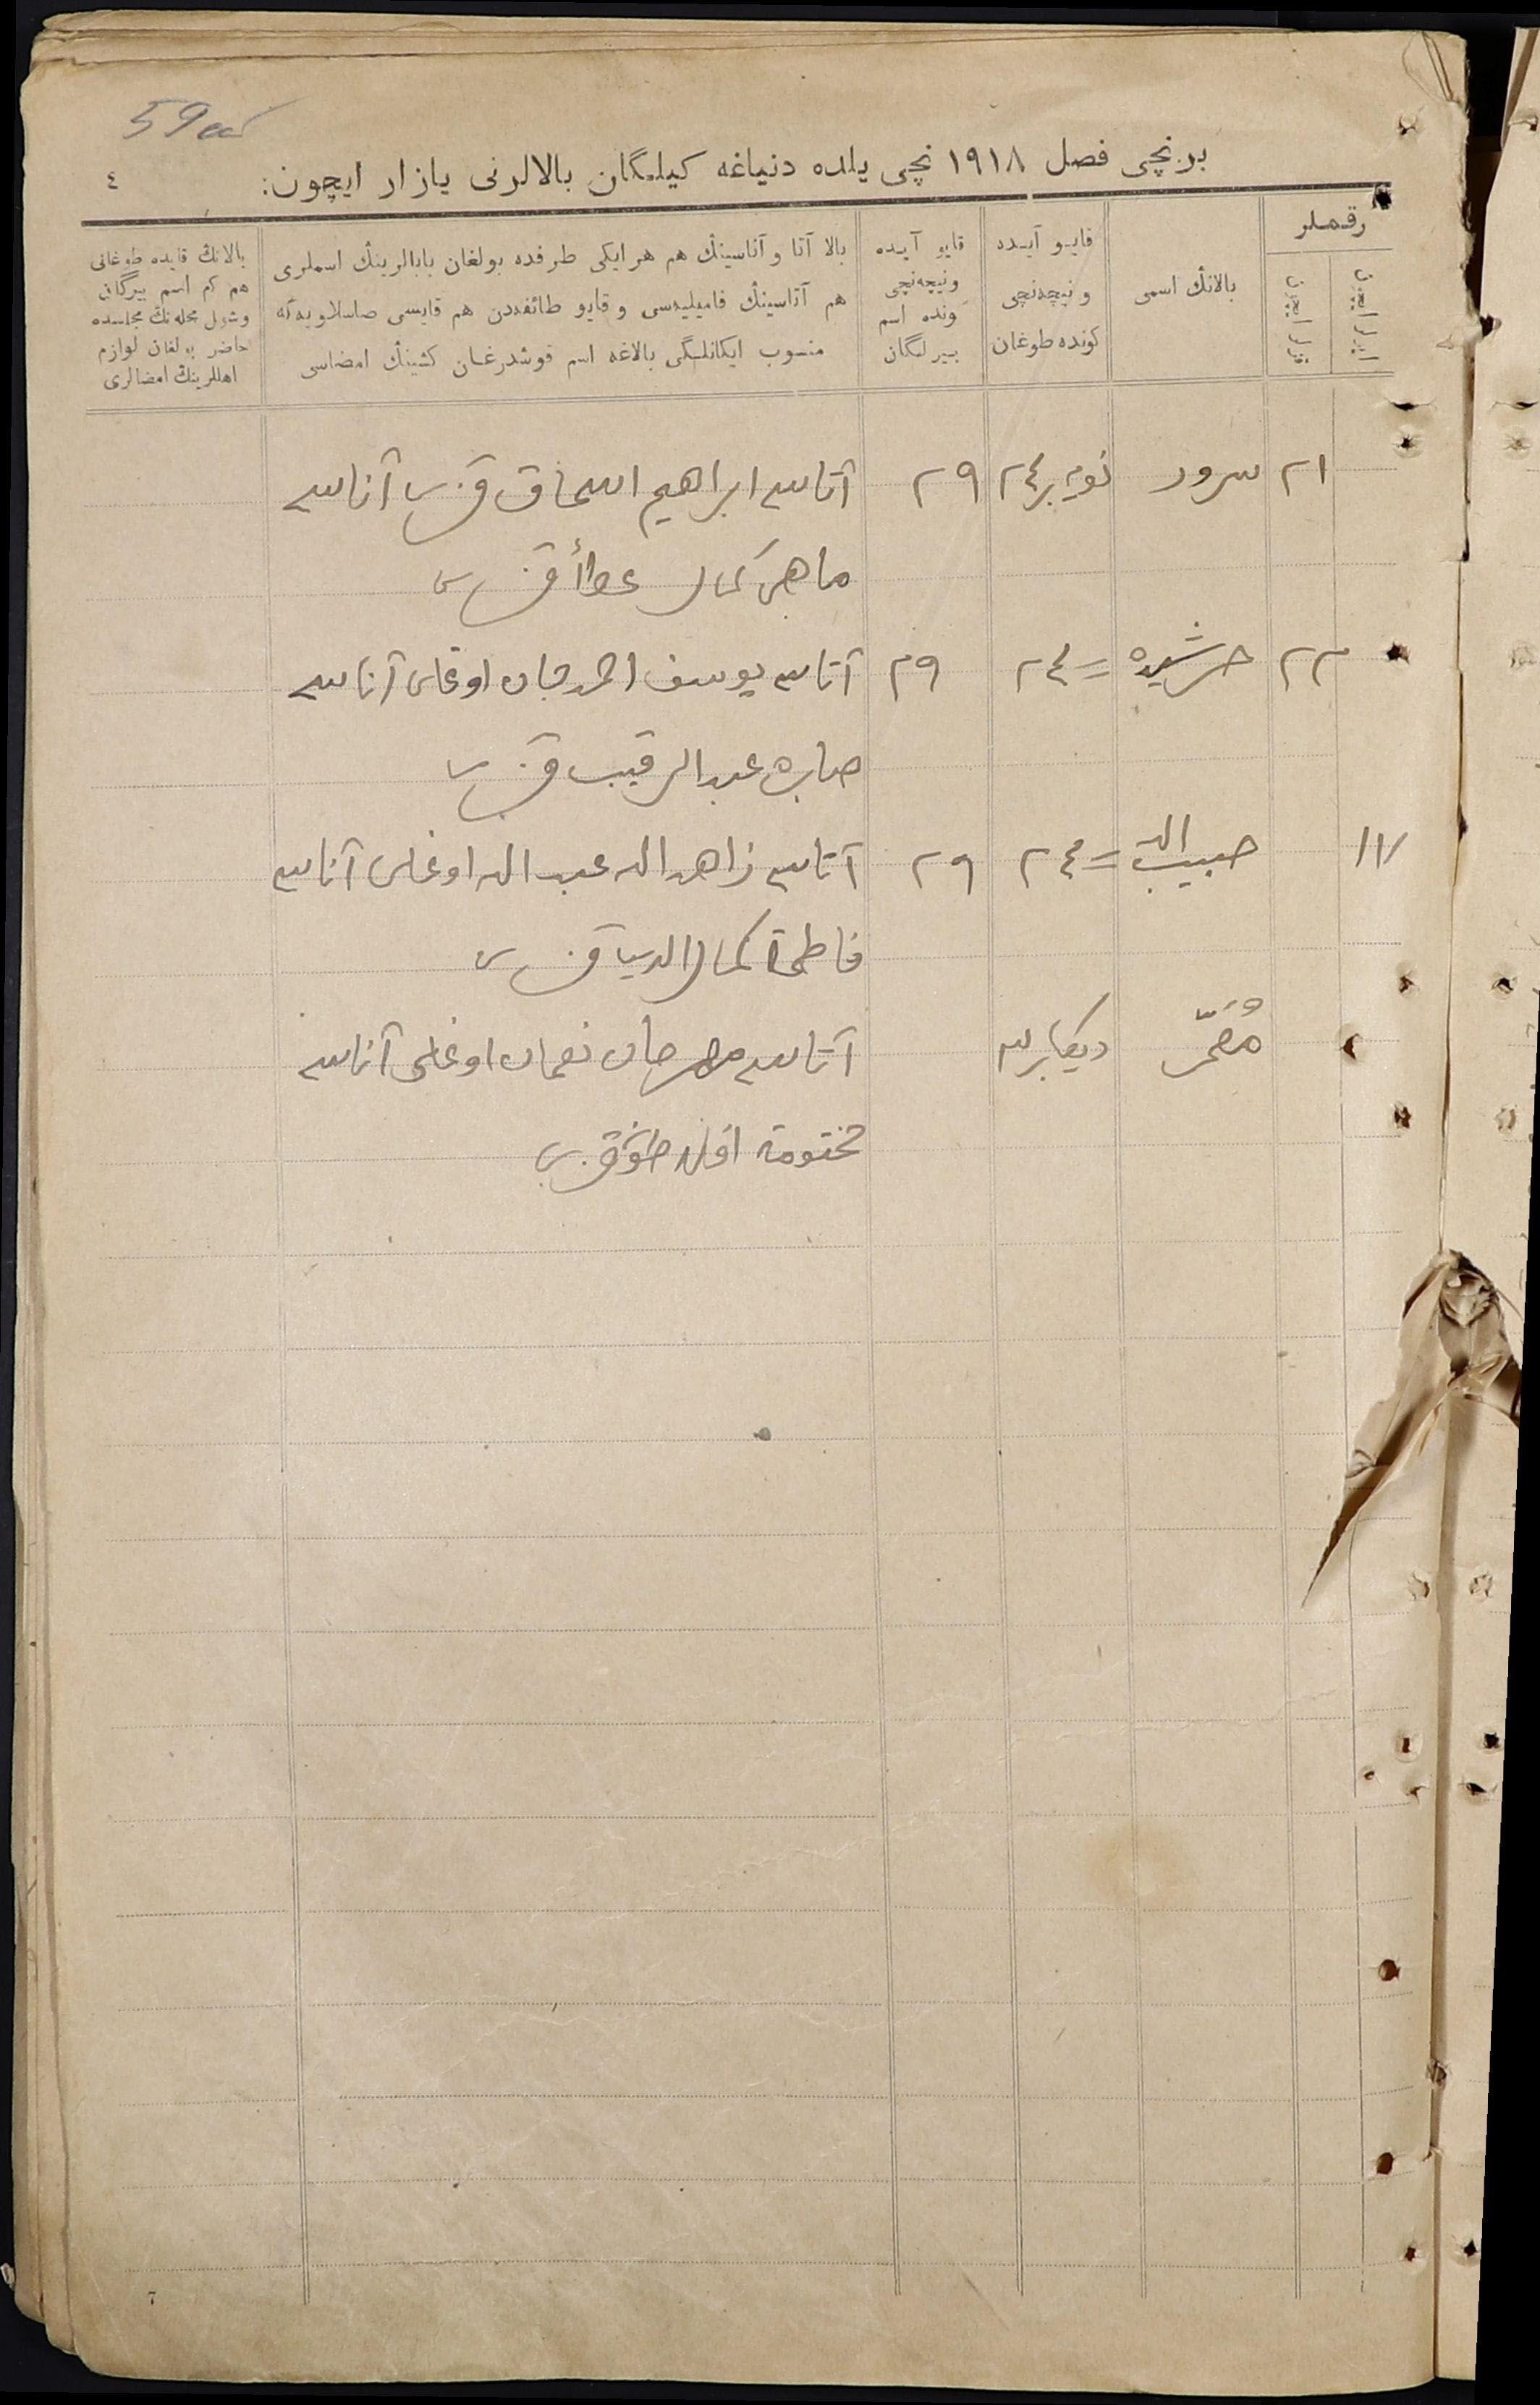 59
برنچی فصل ١٩١٨ نچی یلده دنیاغه کیلگان بالالرنی یازار ایچون:
٤
رقملر
بالانڭ اسمی
قایو آیده
و نیچه‌نچی
کونده طوغان
قایو آیده
و نیچه‌نچی
کونده اسم
بیرلگان
بالا آتا و آناسینڭ هم هر ایکی طرفده بولغان بابالرینڭ اسملری
هم آتاسینڭ فامیلیه‌سی و قایو طائفه‌دن هم قایسی صاسلاویه‌گه
منسوب ایکانلگی بالاغه اسم قوشدرغان کشینڭ امضاسی
بالانڭ قایده طوغانی
هم کم اسم بیرگانی
وشول محله‌نڭ مجلسده
حاضر بولغان لوازم
اهللرینڭ امضالری
٢١ سرور نویابر ٢٤ ٢٩ آتاسی ابراهیم اسحاق قزی آناسی
ماهی کمال عطأ قزی
٢٢ رشیده = ٢٤ ٢٩ آتاسی یوسف احمدجان اوغلی آناسی
صابره عبدالرقیب قزی
١٧ حبیب الله = ٢٤ ٢٩ آتاسی زاهدالله عبدالله اوغلی آناسی
فاطمة کمال الدین قزی
معمّر دیکابر آتاسی نعمان اوغلی آناسی
مختومة قزی
7